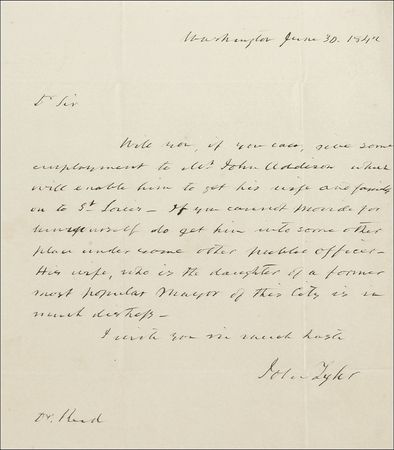 Washington June 30. 1842
Dr Sir
Will you, if you can, give some
employment to Mr. John Addison which
will enable him to get his wife and family
on to St Louis — If you cannot provide for
him yourself do get him into some other
place under some other public officer —
His wife, who is the daughter of a former
most popular Mayor of this City is in
much distress —
I write you in much haste
John Tyler
Dr.